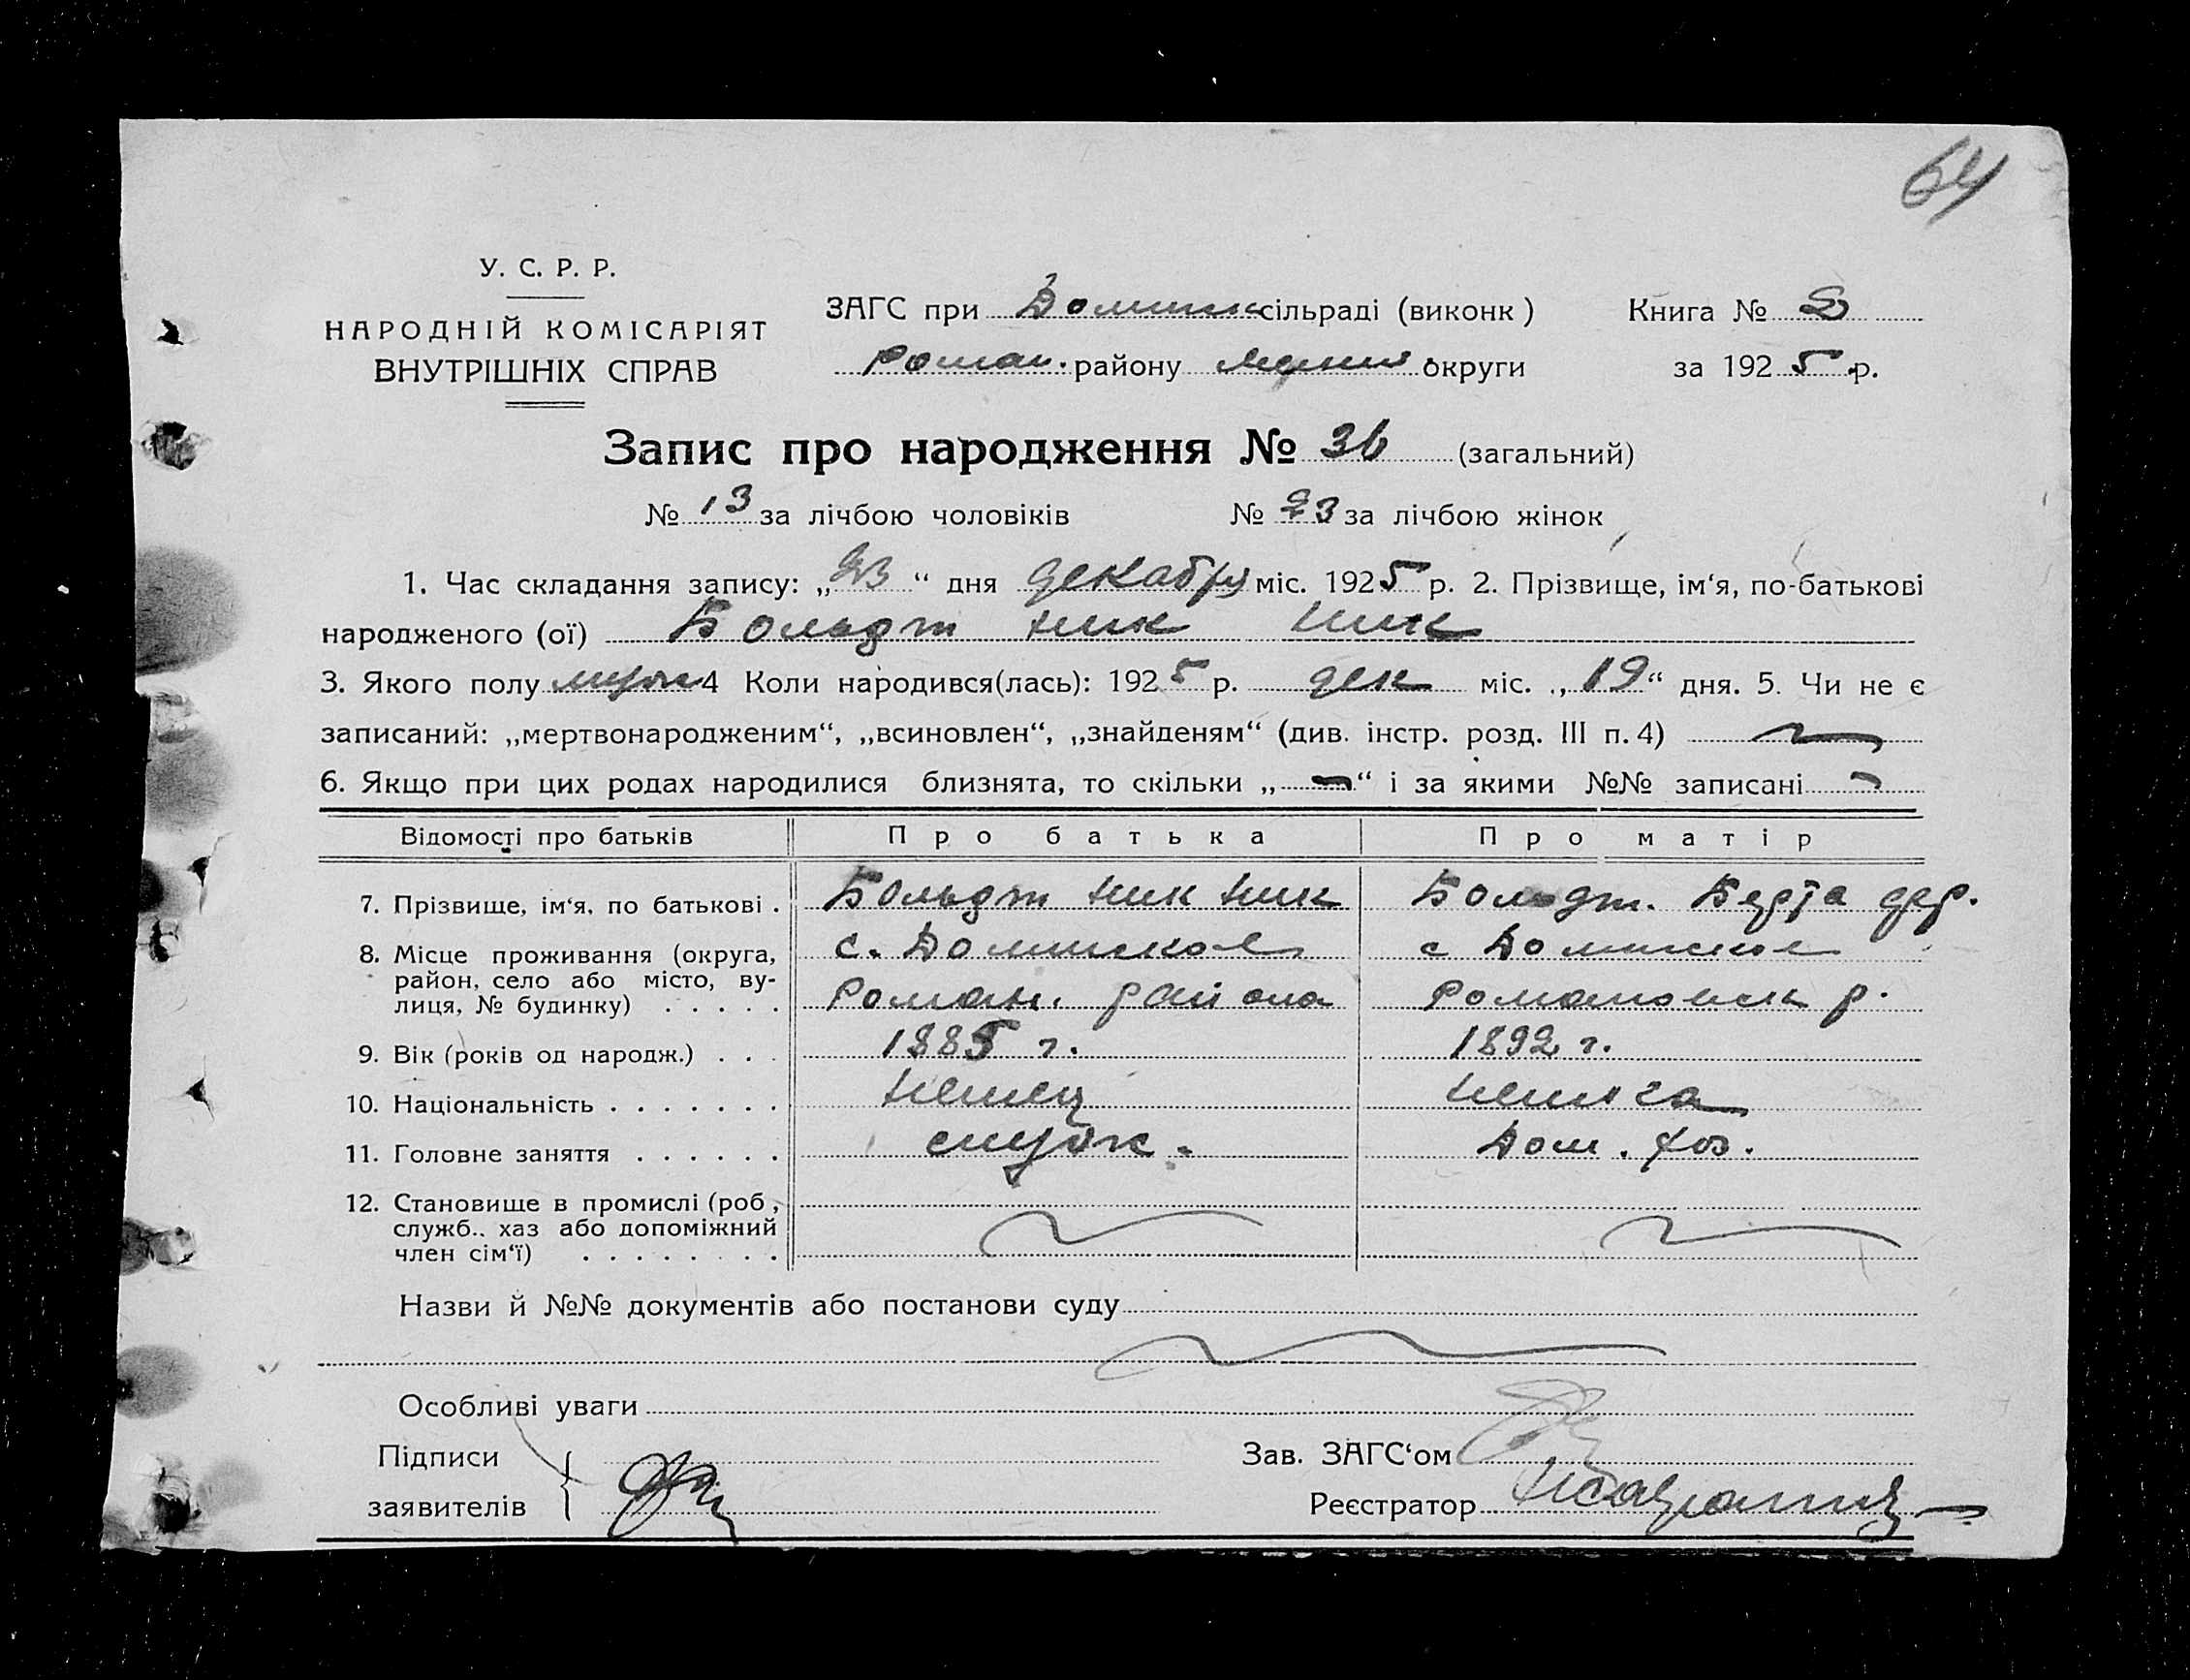 64
У. С. Р. Р.
НАРОДНІЙ КОМІСАРІЯТ
ВНУТРІШНІХ СПРАВ
ЗАГС при Доминк сільраді (виконк)
Роман. району округи
Книга № 2
за 1925 р.
Запис про народження № 36 (загальний)
№ 13 за лічбою чоловіків № 23 за лічбою жінок
1. Час складання запису: „23“ дня декабря міс. 1925 р. 2. Прізвище, ім‘я, по-батькові
народженого (ої) Больдт Ник Ник
3. Якого полу муж 4 Коли народився(лась): 1925 р. дек міс. „19“ дня. 5. Чи не є
записаний: „мертвонародженим“, „всиновлен“, „знайденям“ (див. інстр. розд. III п. 4)
6. Якщо при цих родах народилися близнята, то скільки „—“ і за якими №№ записані
Відомості про батьків Про батька Про матір
7. Прізвище, ім‘я, по батькові . Больдт Ник Ник Больдт. Берта
8. Місце проживання (округа, с. Доминское с Доминское
район, село або місто, ву-
лиця, № будинку) . . . . . Роман. района Романовск р.
9. Вік (років од народж.) . . . 1885 г. 1892 г.
10. Національність . . . . . . . Немец Немка
11. Головне заняття . . . . . . Дом. хоз.
12. Становище в промислі (роб.,
служб.. хаз або допоміжний
член сім‘ї) . . . . . . . .
Назви й №№ документів або постанови суду
Особливі уваги
Підписи
заявителів
Зав. ЗАГС‘ом
Реєстратор